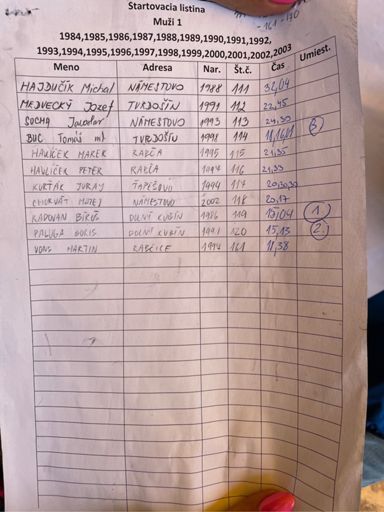 Startovacia listina
Muži 1
-161-170
1984,1985,1986,1987,1988,1989,1990,1991,1992,
1993,1994,1995,1996,1997,1998,1999,2000,2001,2002,2003
Meno Adresa Nar. Št.č. Čas Umiest.
HAJDUČÍK Michal NÁMESTOVO 1988 111 32,04
MEDVECKÝ Jozef TVRDOŠÍN 1991 112 22,45
SOCHA Jaroslav NÁMESTOVO 1993 113 24,30
BUC Tomáš ml TVRDOŠÍN 1998 114 3
HAVLÍČEK MAREK RABČA 1995 115 21,35
HAVLÍČEK PETER RABČA 1994 116 21,33
KURŤÁK JURAJ 1994 117
MATEJ NÁMESTOVO 2002 118 20,17
RADOVAN BIKUŠ DOLNÝ KUBÍN 1986 119 15,04 1.
PALUGA BORIS DOLNÝ KUBÍN 1991 120 15,13 2.
VONS MARTIN RABČICE 1994 161 18,38